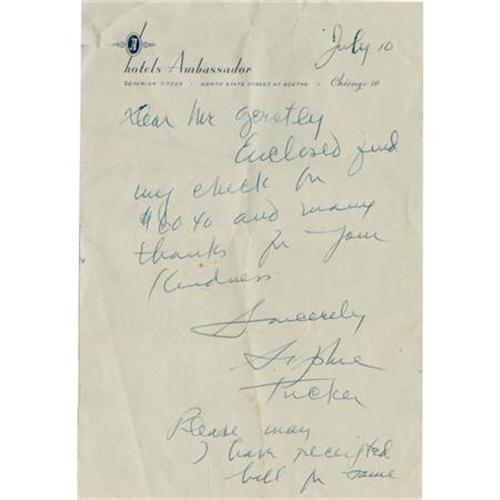 July 10
hotels Ambassador
SUPERIOR 7-7200 • NORTH STATE STREET AT GOETHE • Chicago 10
Dear Mr Gerstley
Enclosed find
my check for
$60 40 and many
thanks for your
Kindness
Sincerely
Sophie
Tucker
Please may
I have receipted
bill for same